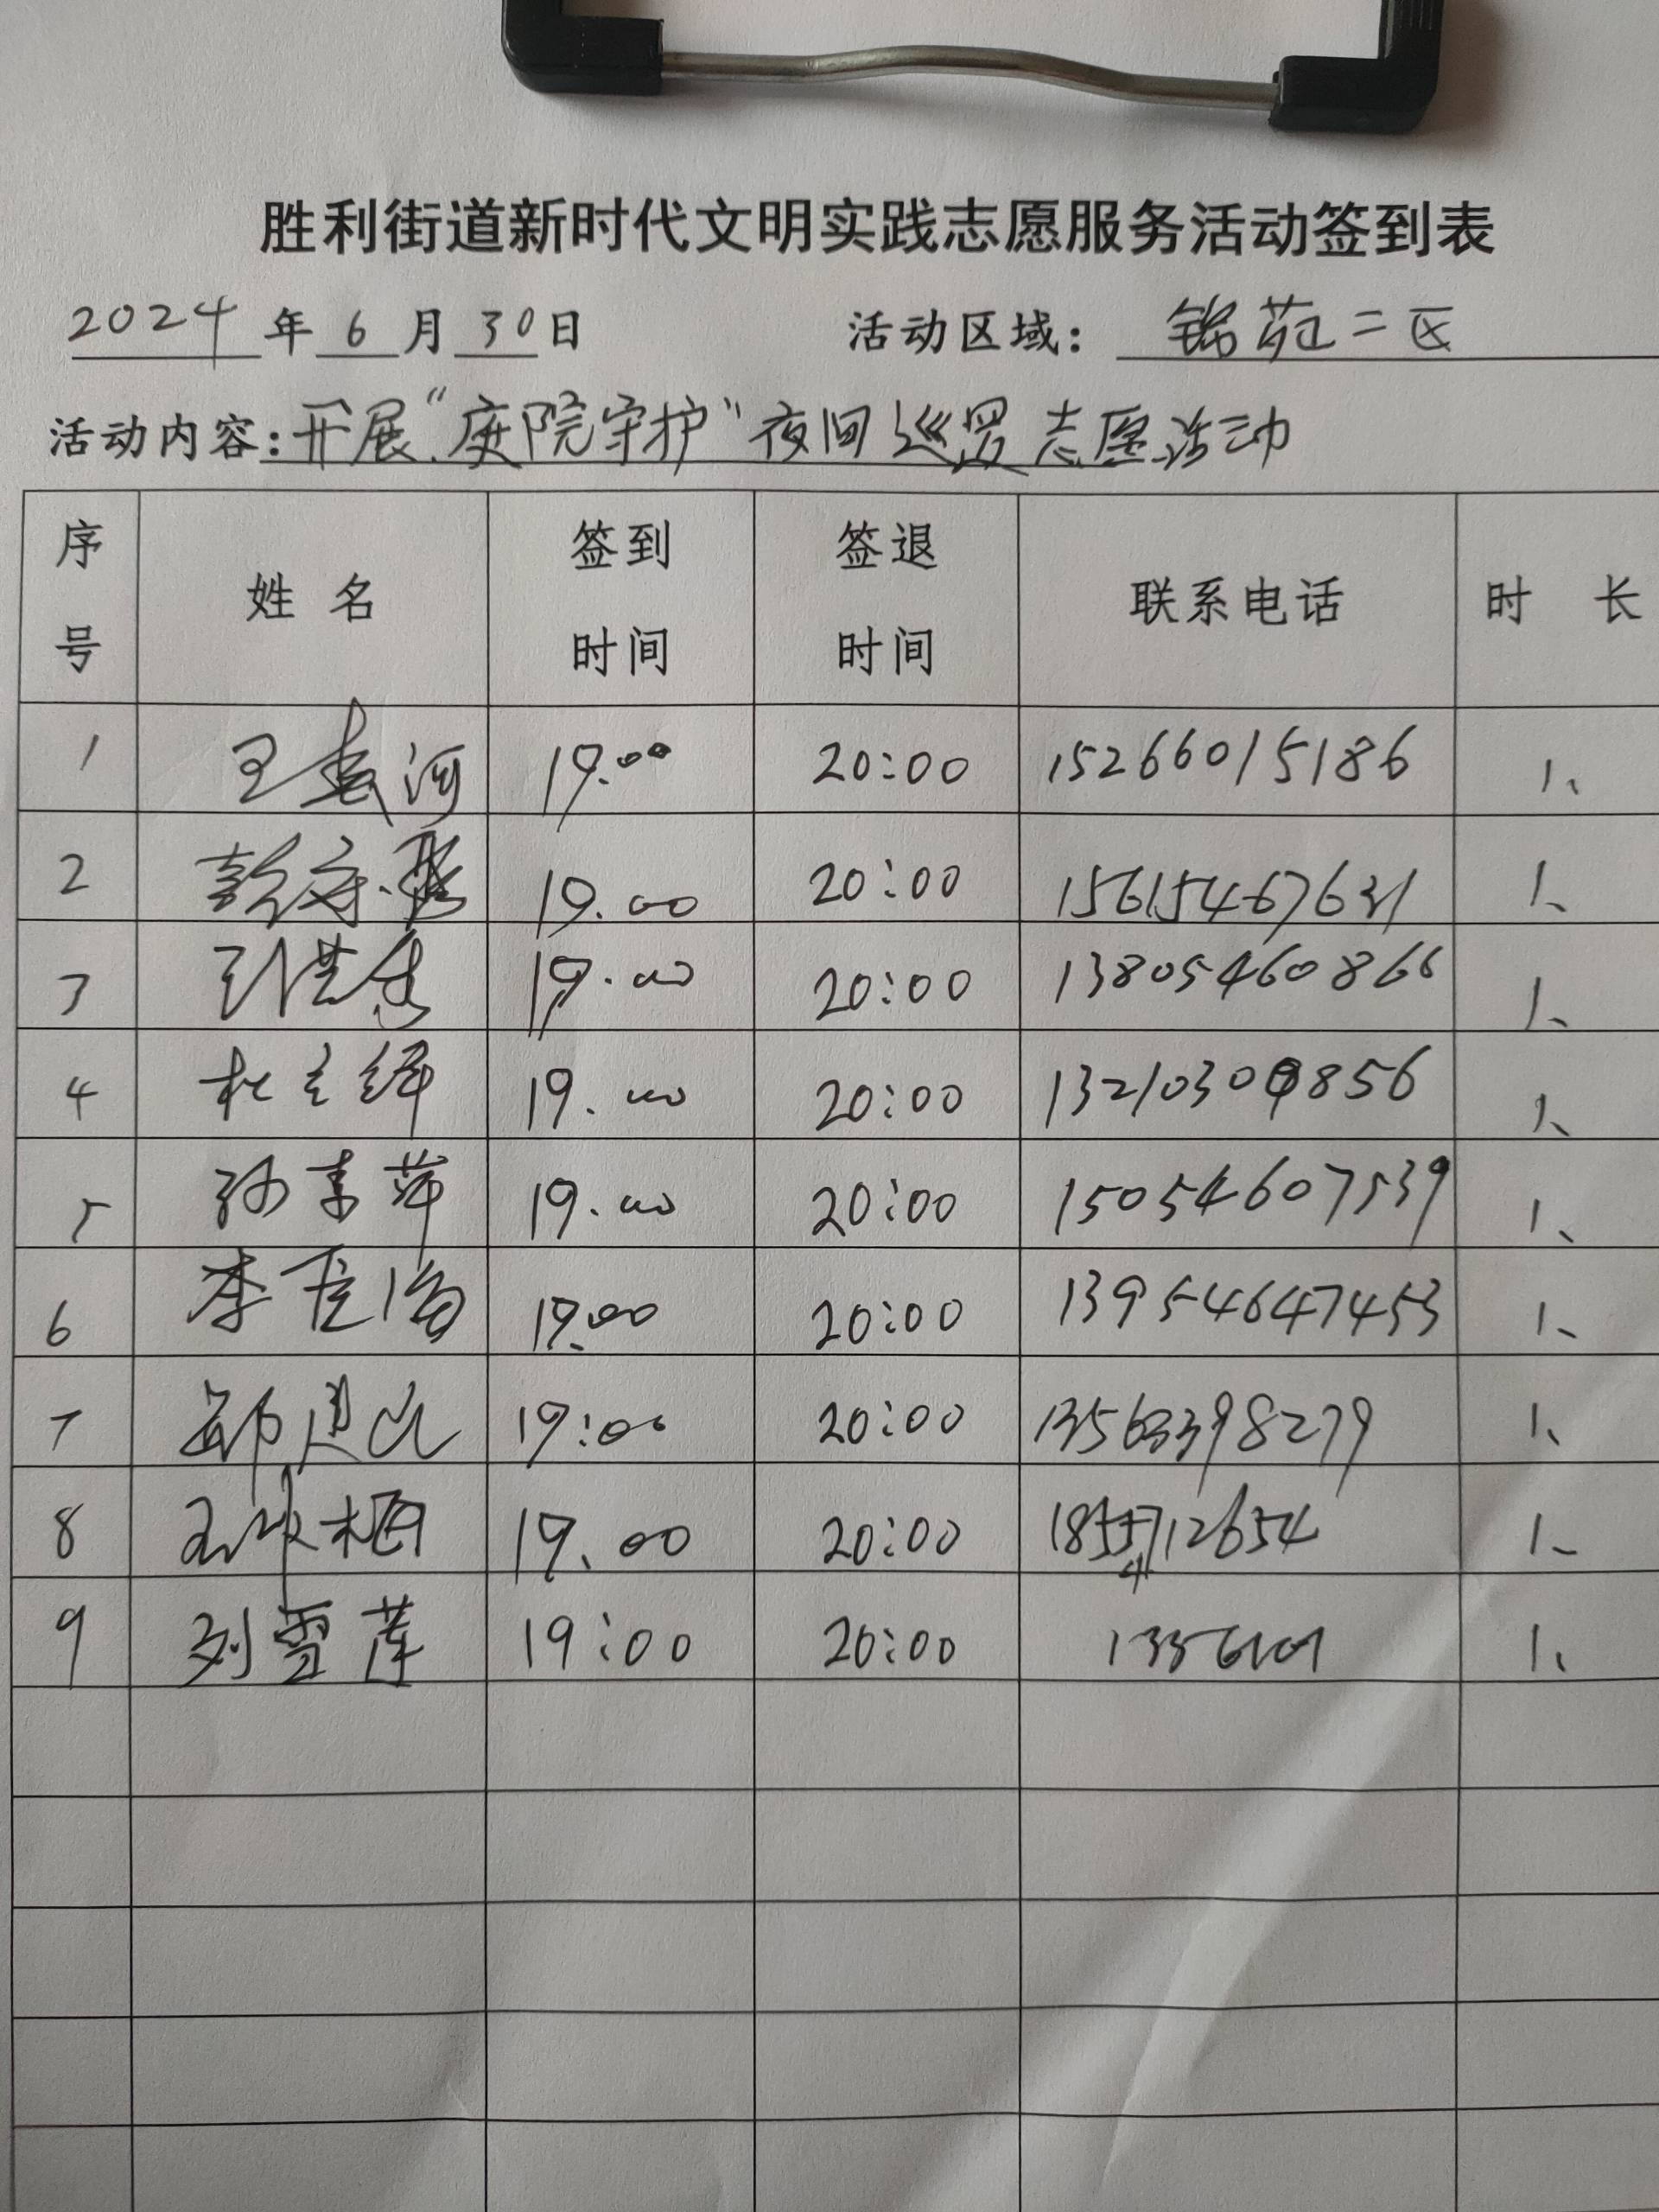 胜利街道新时代文明实践志愿服务活动签到表
2024年6月30日 活动区域：锦苑二区
活动内容：开展“庭院守护”夜间巡逻志愿活动
序号 姓名 签到时间 签退时间 联系电话 时长
1 王春河 19:00 20:00 15266015186 1、
2 19.00 20:00 15615467631 1、
3 19.00 20:00 13805460866 1、
4 杜立绎 19.00 20:00 1、
5 孙素萍 19.00 20:00 15054607539 1、
6 李 19.00 20:00 13954647453 1、
7 19:00 20:00 13563398279 1、
8 19.00 20:00 1、
9 刘雪莲 19:00 20:00 1、